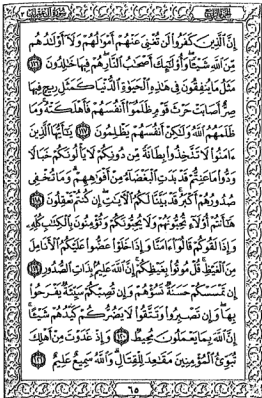 إِنَّ ٱلَّذِينَ كَفَرُوا۟ لَن تُغْنِىَ عَنْهُمْ أَمْوَٰلُهُمْ وَلَآ أَوْلَٰدُهُم
مِّنَ ٱللَّهِ شَيْـًٔا ۖ وَأُو۟لَٰٓئِكَ أَصْحَٰبُ ٱلنَّارِ ۚ هُمْ فِيهَا خَٰلِدُونَ ١١٦
مَثَلُ مَا يُنفِقُونَ فِى هَٰذِهِ ٱلْحَيَوٰةِ ٱلدُّنْيَا كَمَثَلِ رِيحٍ فِيهَا
صِرٌّ أَصَابَتْ حَرْثَ قَوْمٍ ظَلَمُوٓا۟ أَنفُسَهُمْ فَأَهْلَكَتْهُ ۚ وَمَا
ظَلَمَهُمُ ٱللَّهُ وَلَٰكِنْ أَنفُسَهُمْ يَظْلِمُونَ ١١٧ يَٰٓأَيُّهَا ٱلَّذِينَ
ءَامَنُوا۟ لَا تَتَّخِذُوا۟ بِطَانَةً مِّن دُونِكُمْ لَا يَأْلُونَكُمْ خَبَالًا
وَدُّوا۟ مَا عَنِتُّمْ قَدْ بَدَتِ ٱلْبَغْضَآءُ مِنْ أَفْوَٰهِهِمْ وَمَا تُخْفِى
صُدُورُهُمْ أَكْبَرُ ۚ قَدْ بَيَّنَّا لَكُمُ ٱلْءَايَٰتِ ۖ إِن كُنتُمْ تَعْقِلُونَ ١١٨
هَٰٓأَنتُمْ أُو۟لَآءِ تُحِبُّونَهُمْ وَلَا يُحِبُّونَكُمْ وَتُؤْمِنُونَ بِٱلْكِتَٰبِ كُلِّهِۦ
وَإِذَا لَقُوكُمْ قَالُوٓا۟ ءَامَنَّا وَإِذَا خَلَوْا۟ عَضُّوا۟ عَلَيْكُمُ ٱلْأَنَامِلَ
مِنَ ٱلْغَيْظِ ۚ قُلْ مُوتُوا۟ بِغَيْظِكُمْ ۗ إِنَّ ٱللَّهَ عَلِيمٌۢ بِذَاتِ ٱلصُّدُورِ ١١٩
إِن تَمْسَسْكُمْ حَسَنَةٌ تَسُؤْهُمْ وَإِن تُصِبْكُمْ سَيِّئَةٌ يَفْرَحُوا۟
بِهَا ۖ وَإِن تَصْبِرُوا۟ وَتَتَّقُوا۟ لَا يَضُرُّكُمْ كَيْدُهُمْ شَيْـًٔا ۗ
إِنَّ ٱللَّهَ بِمَا يَعْمَلُونَ مُحِيطٌ ١٢٠ وَإِذْ غَدَوْتَ مِنْ أَهْلِكَ
تُبَوِّئُ ٱلْمُؤْمِنِينَ مَقَٰعِدَ لِلْقِتَالِ ۗ وَٱللَّهُ سَمِيعٌ عَلِيمٌ ١٢١
٦٥